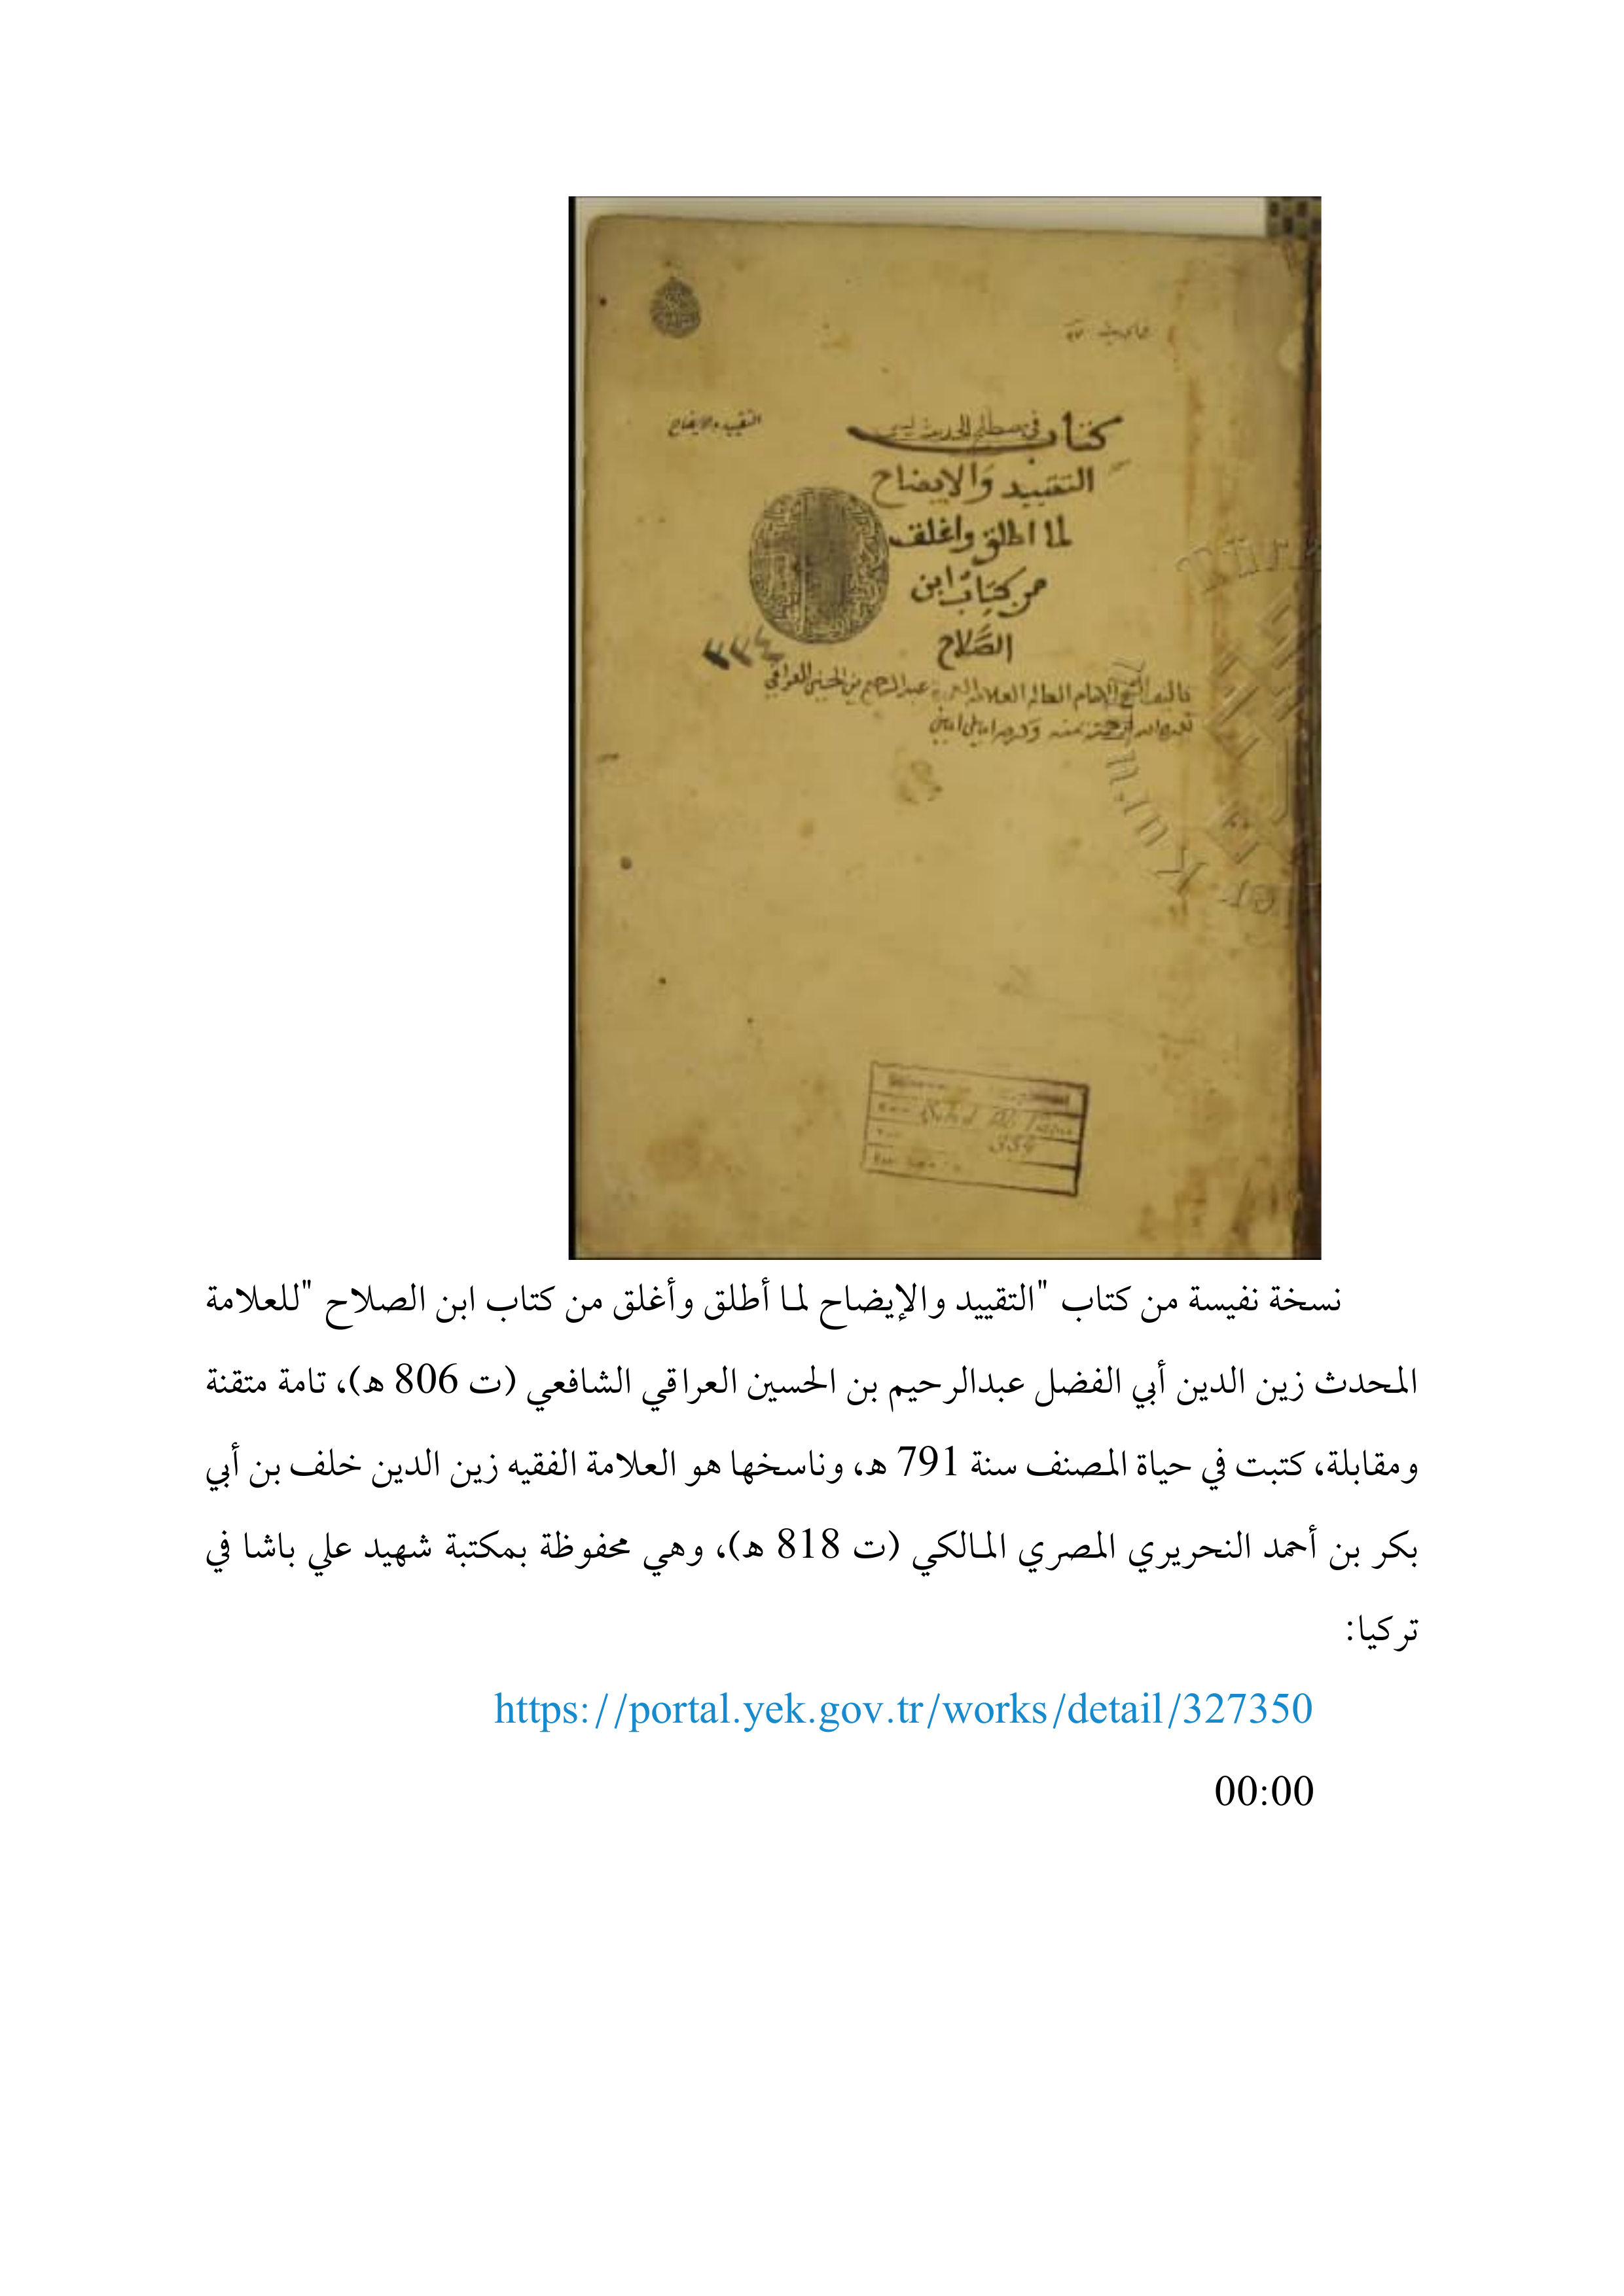 التقييد والايضاح
كتاب في مصطلح الحديث
التقييد والايضاح
لما اطلق واغلق
من كتاب ابن
الصلاح
٣٣٤
تاليف الشيخ الامام العالم العلامة عبد الرحيم بن الحسين العراقي
334
نسخة نفيسة من كتاب "التقييد والإيضاح لما أطلق وأغلق من كتاب ابن الصلاح "للعلامة
المحدث زين الدين أبي الفضل عبدالرحيم بن الحسين العراقي الشافعي (ت 806 ه)، تامة متقنة
ومقابلة، كتبت في حياة المصنف سنة 791 ه، وناسخها هو العلامة الفقيه زين الدين خلف بن أبي
بكر بن أحمد النحريري المصري المالكي (ت 818 ه)، وهي محفوظة بمكتبة شهيد علي باشا في
تركيا:
https://portal.yek.gov.tr/works/detail/327350
00:00